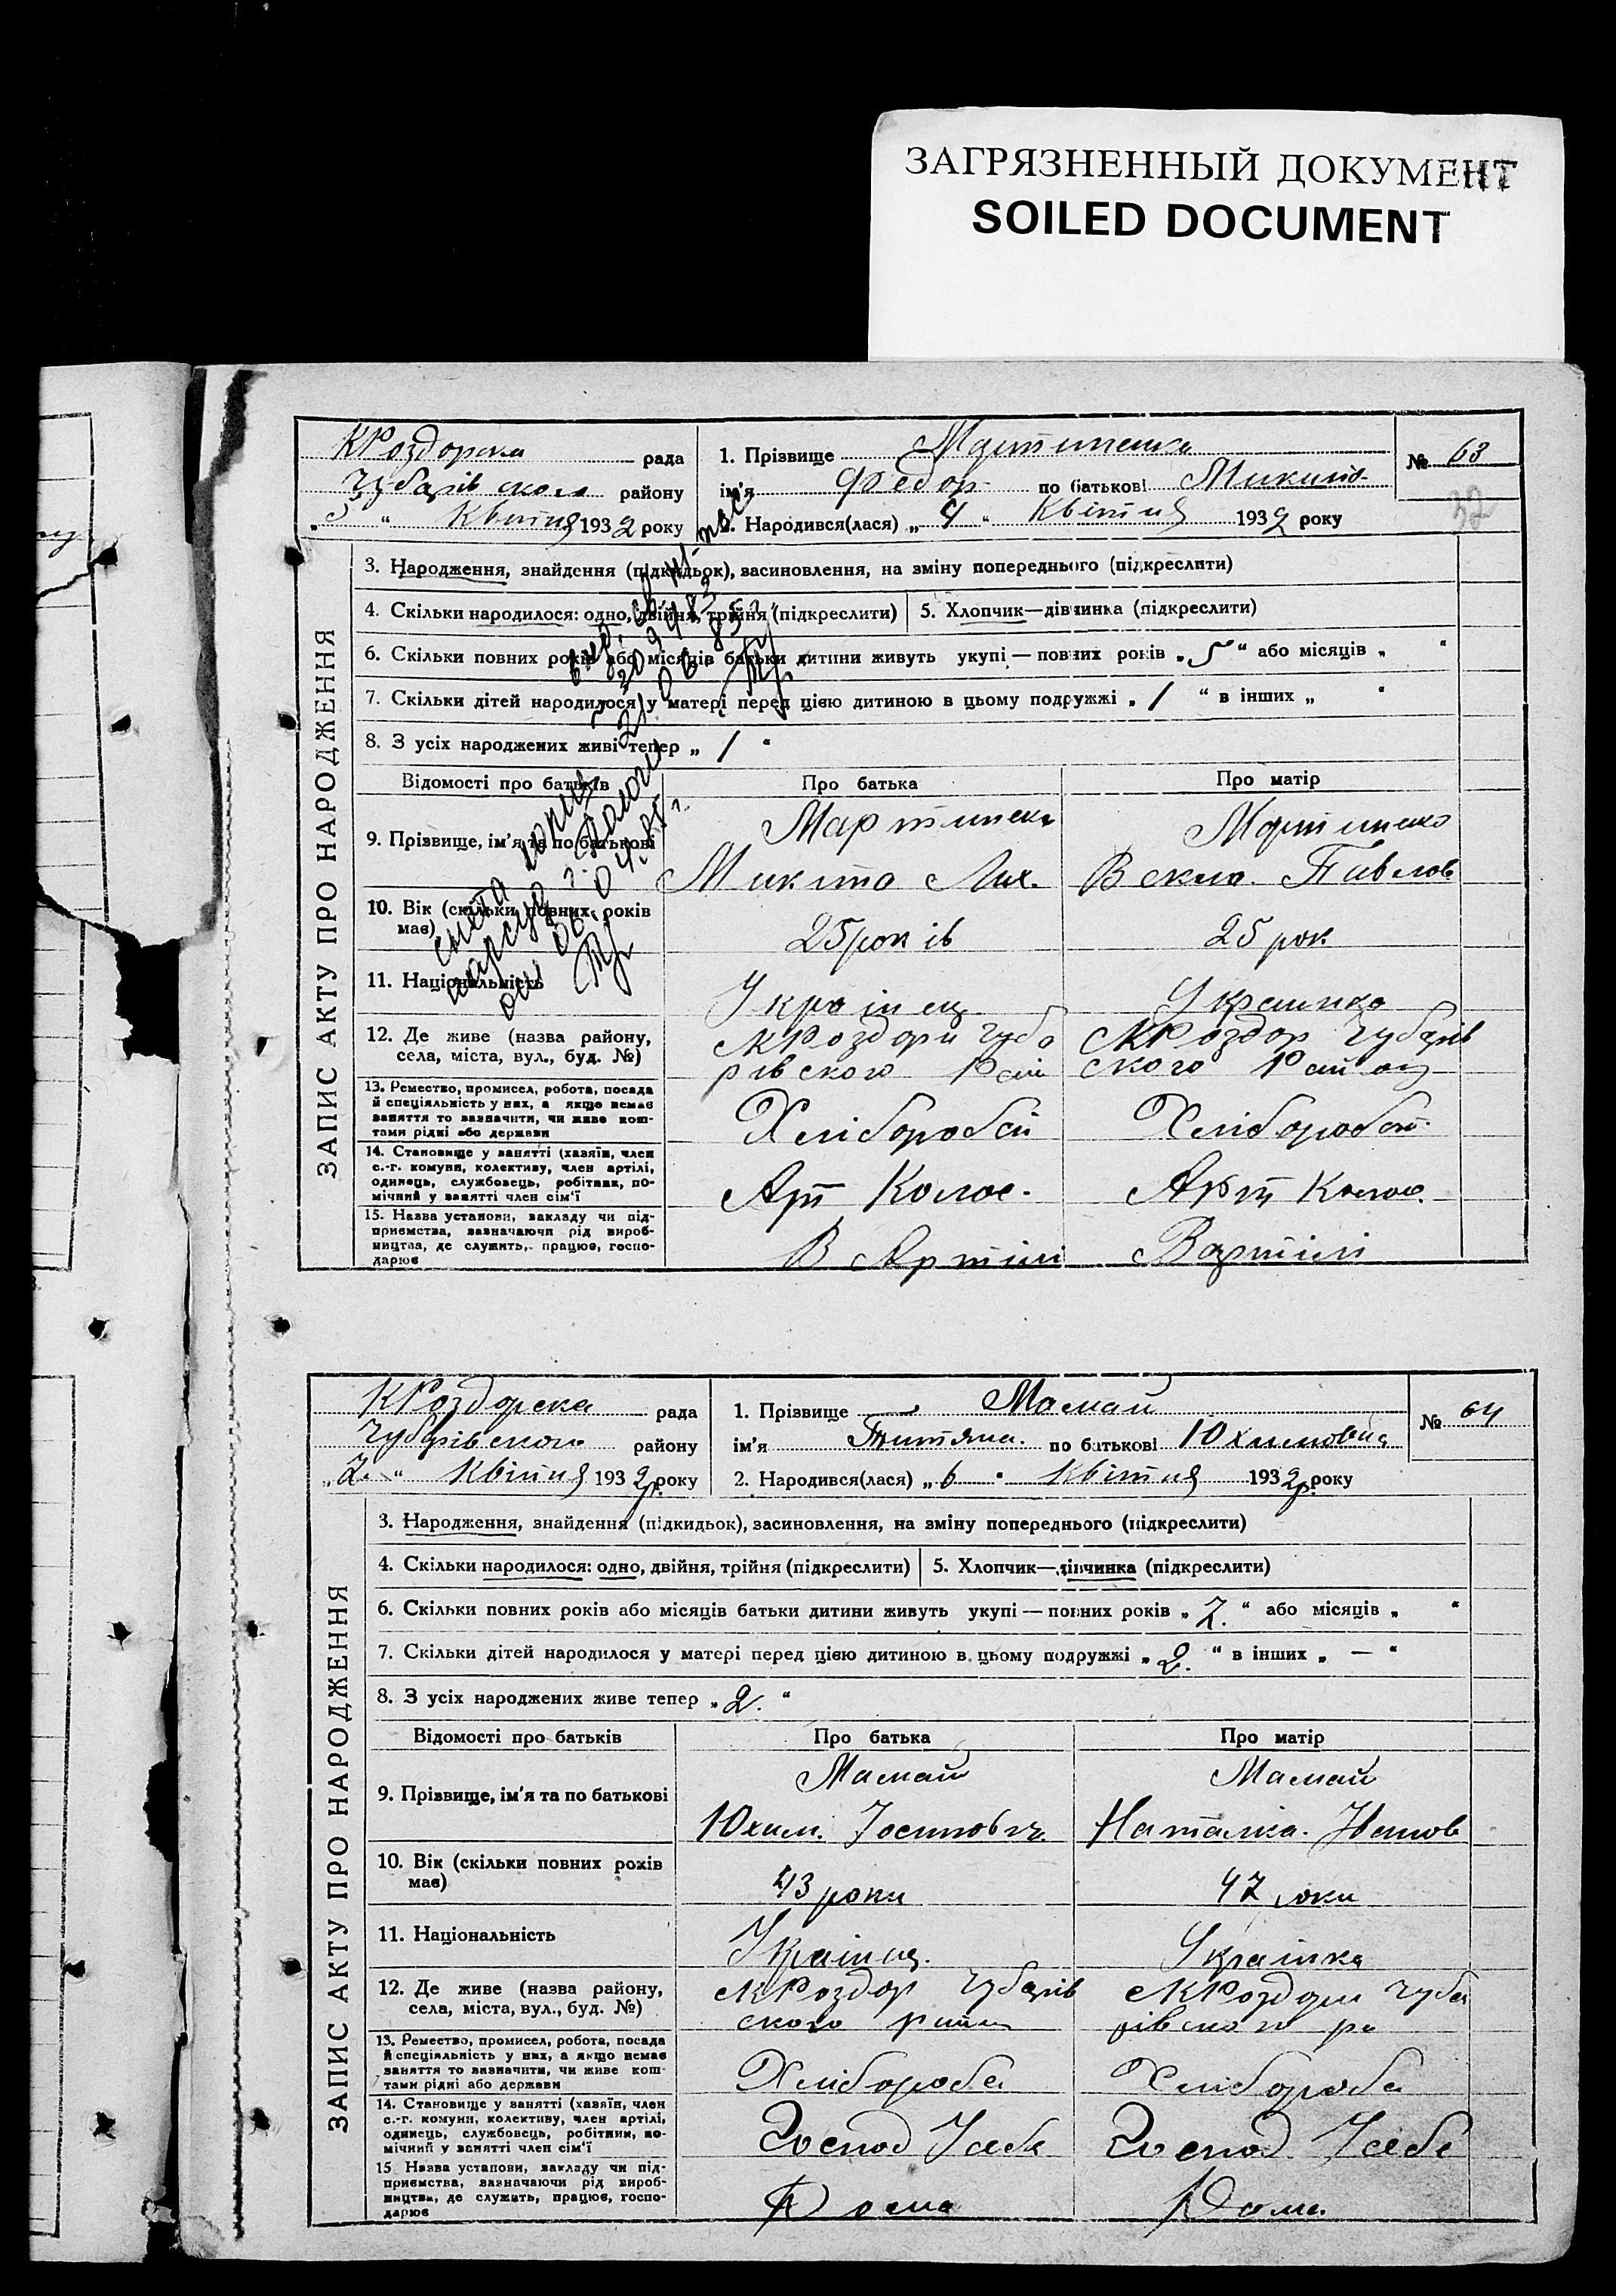 ЗАГРЯЗНЕННЫЙ ДОКУМЕНТ
SOILED DOCUMENT
КРоздорска рада
1. Прізвище Мартиненко
№ 63
Чубарівского району
ім'я Федор по батькові Микито-
„5“ Квітня 1932 року
2. Народився(лася) „4“ Квітня 1932 року
37
ЗАПИС АКТУ ПРО НАРОДЖЕННЯ
3. Народження, знайдення (підкидьок), засиновлення, на зміну попереднього (підкреслити)
4. Скільки народилося: одно, двійня, трійня (підкреслити)
5. Хлопчик—дівчинка (підкреслити)
6. Скільки повних років або місяців батьки дитини живуть укупі — повних років „5“ або місяців „ “
7. Скільки дітей народилося у матері перед цією дитиною в цьому подружжі „1“ в інших „ “
8. З усіх народжених живі тепер „1“
Відомості про батьків
Про батька
Про матір
9. Прізвище, ім'я та по батькові
Мартиненк
Микита Лук.
Мартиненко
Векла. Павлов
10. Вік (скільки повних років має)
25 років
25 рок
11. Національність
Українец
Українка
12. Де живе (назва району,
села, міста, вул., буд. №)
сКРоздори Чуба
рівского Рай
сКРоздор Чубарів
ского Району
13. Ремество, промисел, робота, посада
й спеціяльність у них, а якщо немає
заняття то зазначити, чи живе кош-
тами рідні або держави
Хлібороб
Хлібороб
14. Становище у занятті (хазяїн, член
с.-г. комуни, колективу, член артілі,
одинець, службовець, робітник, по-
мічний у занятті член сім'ї
Арт Колос.
Арт Колос.
15. Назва установи, закладу чи під-
приємства, зазначаючи рід вироб-
ництва, де служить, працює, госпо-
дарює
В Артілі
В артілі
КРоздорска рада
1. Прізвище Мамай
№ 64
Чубарівского району
ім'я Титяна. по батькові Юхимовна
„7.“ Квітня 1932р. року
2. Народився(лася) „6“ Квітня 1932р. року
ЗАПИС АКТУ ПРО НАРОДЖЕННЯ
3. Народження, знайдення (підкидьок), засиновлення, на зміну попереднього (підкреслити)
4. Скільки народилося: одно, двійня, трійня (підкреслити)
5. Хлопчик—дівчинка (підкреслити)
6. Скільки повних років або місяців батьки дитини живуть укупі — повних років „7.“ або місяців „ “
7. Скільки дітей народилося у матері перед цією дитиною в цьому подружжі „2.“ в інших „—“
8. З усіх народжених живе тепер „2.“
Відомості про батьків
Про батька
Про матір
9. Прізвище, ім'я та по батькові
Мамай
Юхим. Іосипович.
Мамай
Наталка. Іванов
10. Вік (скільки повних років має)
43 роки
47 роки
11. Національність
Українц.
Українка
12. Де живе (назва району,
села, міста, вул., буд. №)
сКРоздор Чубарів
ского район
сКРоздори Чуба
рівского ра
13. Ремество, промисел, робота, посада
й спеціяльність у них, а якщо немає
заняття то зазначити, чи живе кош-
тами рідні або держави
Хлібороба
Хлібороба
14. Становище у занятті (хазяїн, член
с.-г. комуни, колективу, член артілі,
одинець, службовець, робітник, по-
мічний у занятті член сім'ї
Господ Усебе
Господ Усебе
15. Назва установи, закладу чи під-
приємства, зазначаючи рід вироб-
ництва, де служить, працює, госпо-
дарює
Дома
Дома